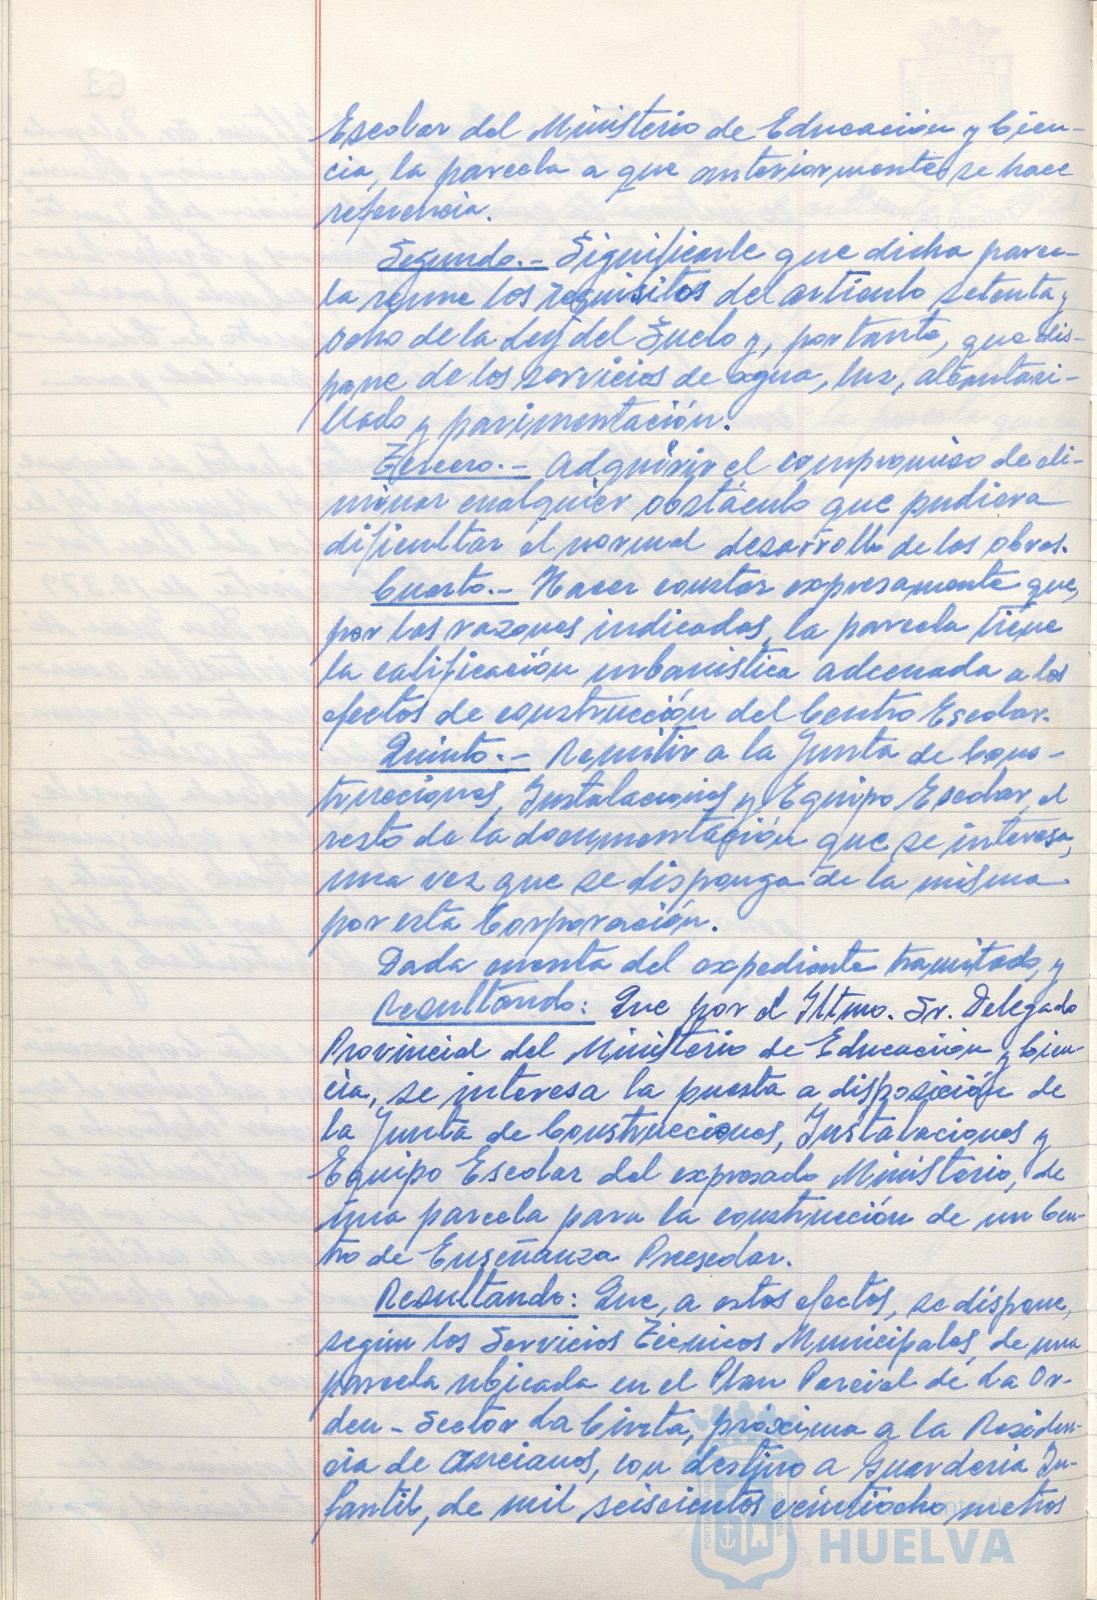 Escolar del Ministerio de Educación y Cien-
cia, la parcela a que anteriormente se hace
referencia.
Segundo.- Significarle que dicha parce-
la reune los requisitos del artículo setenta y
ocho de la Ley del Suelo y, por tanto, que dis-
pone de los servicios de agua, luz, alcantari-
llado y pavimentación.
Tercero.- Adquirir el compromiso de eli-
minar cualquier obstáculo que pudiera
dificultar el normal desarrollo de las obras.
Cuarto.- Hacer constar expresamente que,
por las razones indicadas, la parcela tiene
la calificación urbanística adecuada a los
efectos de construcción del Centro Escolar.
Quinto.- Remitir a la Junta de Cons-
trucciones, Instalaciones y Equipo Escolar, el
resto de la documentación que se interesa,
una vez que se disponga de la misma
por esta Corporación.
Dada cuenta del expediente tramitado, y
Resultando: Que por el Iltmo. Sr. Delegado
Provincial del Ministerio de Educación y Cien-
cia, se interesa la puesta a disposición de
la Junta de Construcciones, Instalaciones y
Equipo Escolar del expresado Ministerio, de
una parcela para la construcción de un Cen-
tro de Enseñanza Preescolar.
Resultando: Que, a estos efectos, se dispone,
según los Servicios Técnicos Municipales, de una
parcela ubicada en el Plan Parcial de La Or-
den - Sector La Cinta, próxima a la Residen-
cia de Ancianos, con destino a Guardería In-
fantil, de mil seiscientos veintiocho metros
HUELVA